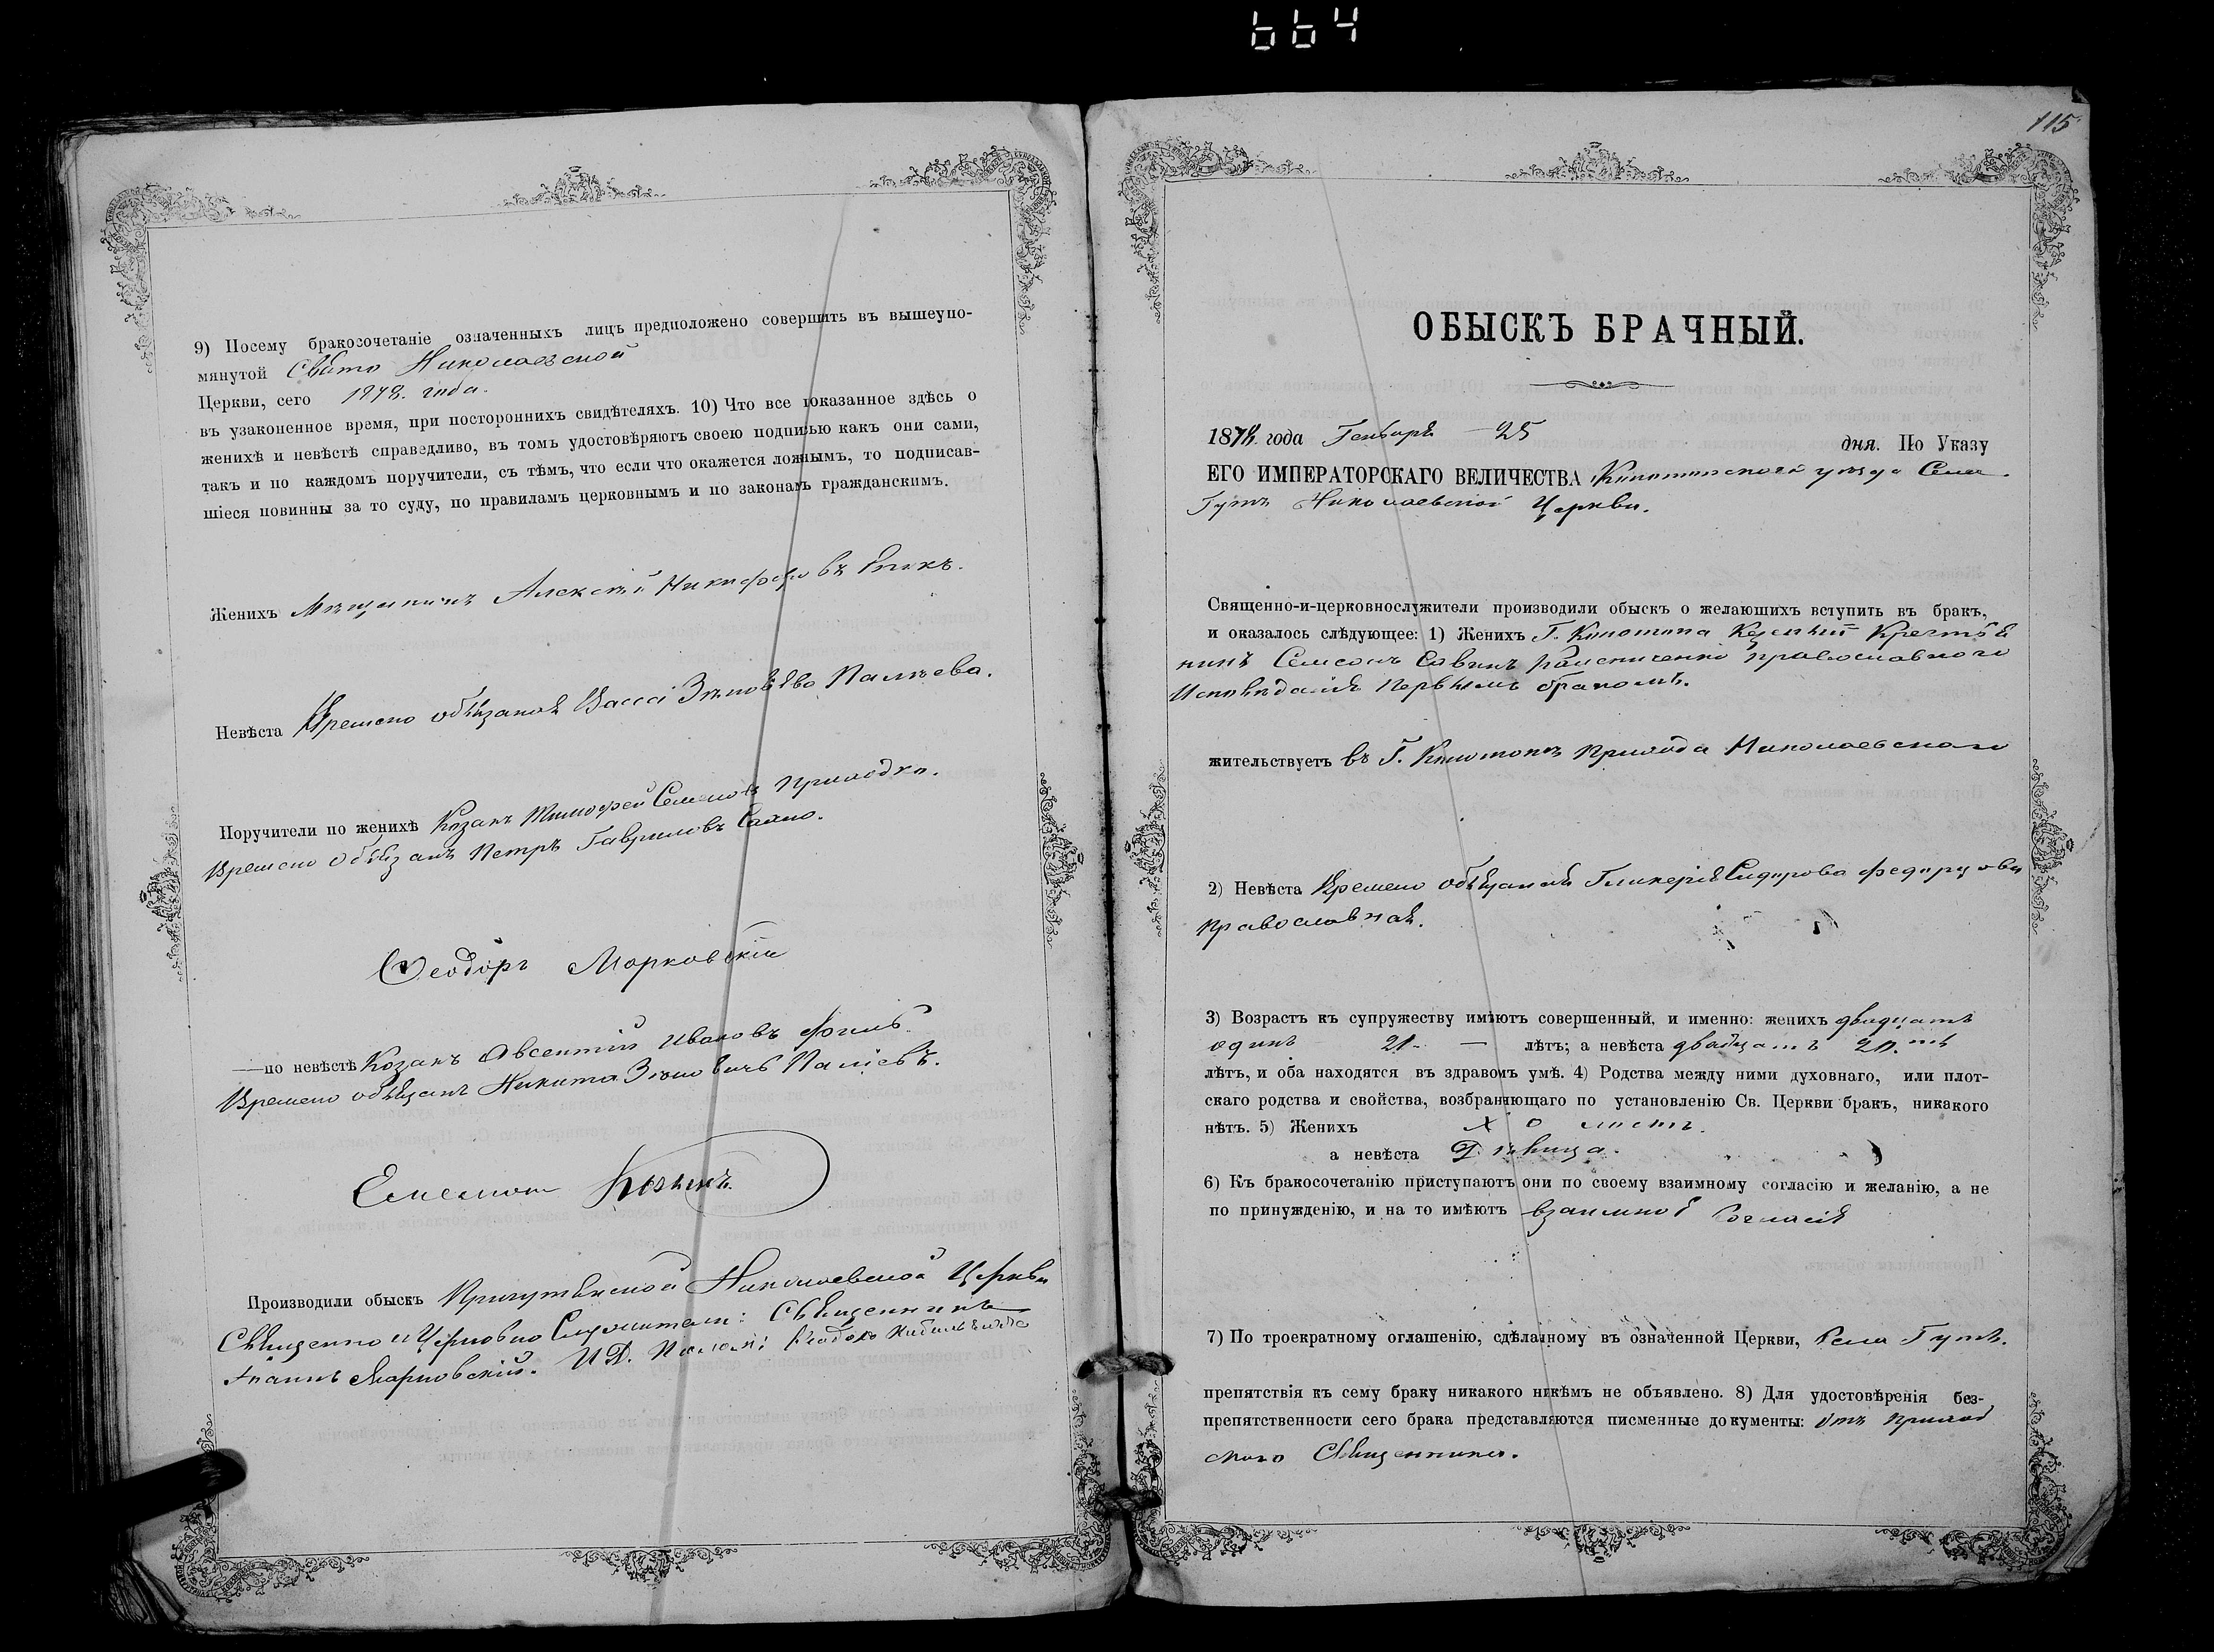 664
9) Посему бракосочетаніе означенныхъ лицъ предположено совершить въ вышеупо-
мянутой Свято Николаевской
Церкви, сего 1878. года.
въ узаконенное время, при постороннихъ свидѣтеляхъ. 10) Что все показанное здѣсь о
женихѣ и невѣстѣ справедливо, въ томъ удостовѣряютъ своею подписью какъ они сами,
такъ и по каждомъ поручители, съ тѣмъ, что если что окажется ложнымъ, то подписав-
шіеся повинны за то суду, по правиламъ церковнымъ и по законамъ гражданскимъ.
Женихъ Мѣщанинъ Алексѣй Никифоровъ
Невѣста Времено обязаная Васса Зѣновѣва Палѣева.
Поручители по женихѣ Козакъ Тимофей Семеновъ Приходко.
Времено обязанъ Петръ Гавриловъ
Ѳеодоръ Марковскій
—по невѣстѣ Козакъ Авсентій Ивановъ
Времено обязанъ Никита Зѣновичъ Паліевъ.
Емельянъ
Производили обыскъ Николаевской Церкви
Священно и Церковно Служители: Священникъ
Іоаннъ Марковскій. И. Д.
115
ОБЫСКЪ БРАЧНЫЙ.
1878 года Генваря — 25 дня. По Указу
ЕГО ИМПЕРАТОРСКАГО ВЕЛИЧЕСТВА Конотопскога уѣзда Села
Гутъ Николаевской Церкви.
Священно-и-церковнослужители производили обыскъ о желающихъ вступить въ бракъ,
и оказалось слѣдующее: 1) Женихъ Г. Конотопа Крестья
нинъ Самсонъ Савинъ православного
Исповѣданія первымъ бракомъ.
жительствуетъ въ Г. Конотопѣ Прихода Николаевскаго
2) Невѣста Времено обязаная Гликерія Сидорова
Православная.
3) Возрастъ къ супружеству имѣютъ совершенный, и именно: женихъ двадцать
одинъ 21. — лѣтъ; а невѣста двадцать 20.ть
лѣтъ, и оба находятся въ здравомъ умѣ. 4) Родства между ними духовнаго, или плот-
скаго родства и свойства, возбраняющаго по установленію Св. Церкви бракъ, никакого
нѣтъ. 5) Женихъ Холостъ.
а невѣста Дѣвица.
6) Къ бракосочетанію приступаютъ они по своему взаимному согласію и желанію, а не
по принужденію, и на то имѣютъ взаимноѣ согласія
7) По троекратному оглашенію, сдѣланному въ означенной Церкви, Села Гутъ.
препятствія къ сему браку никакого никѣмъ не объявлено. 8) Для удостовѣренія без-
препятственности сего брака представляются писменные документы: отъ приход
скаго Священника.